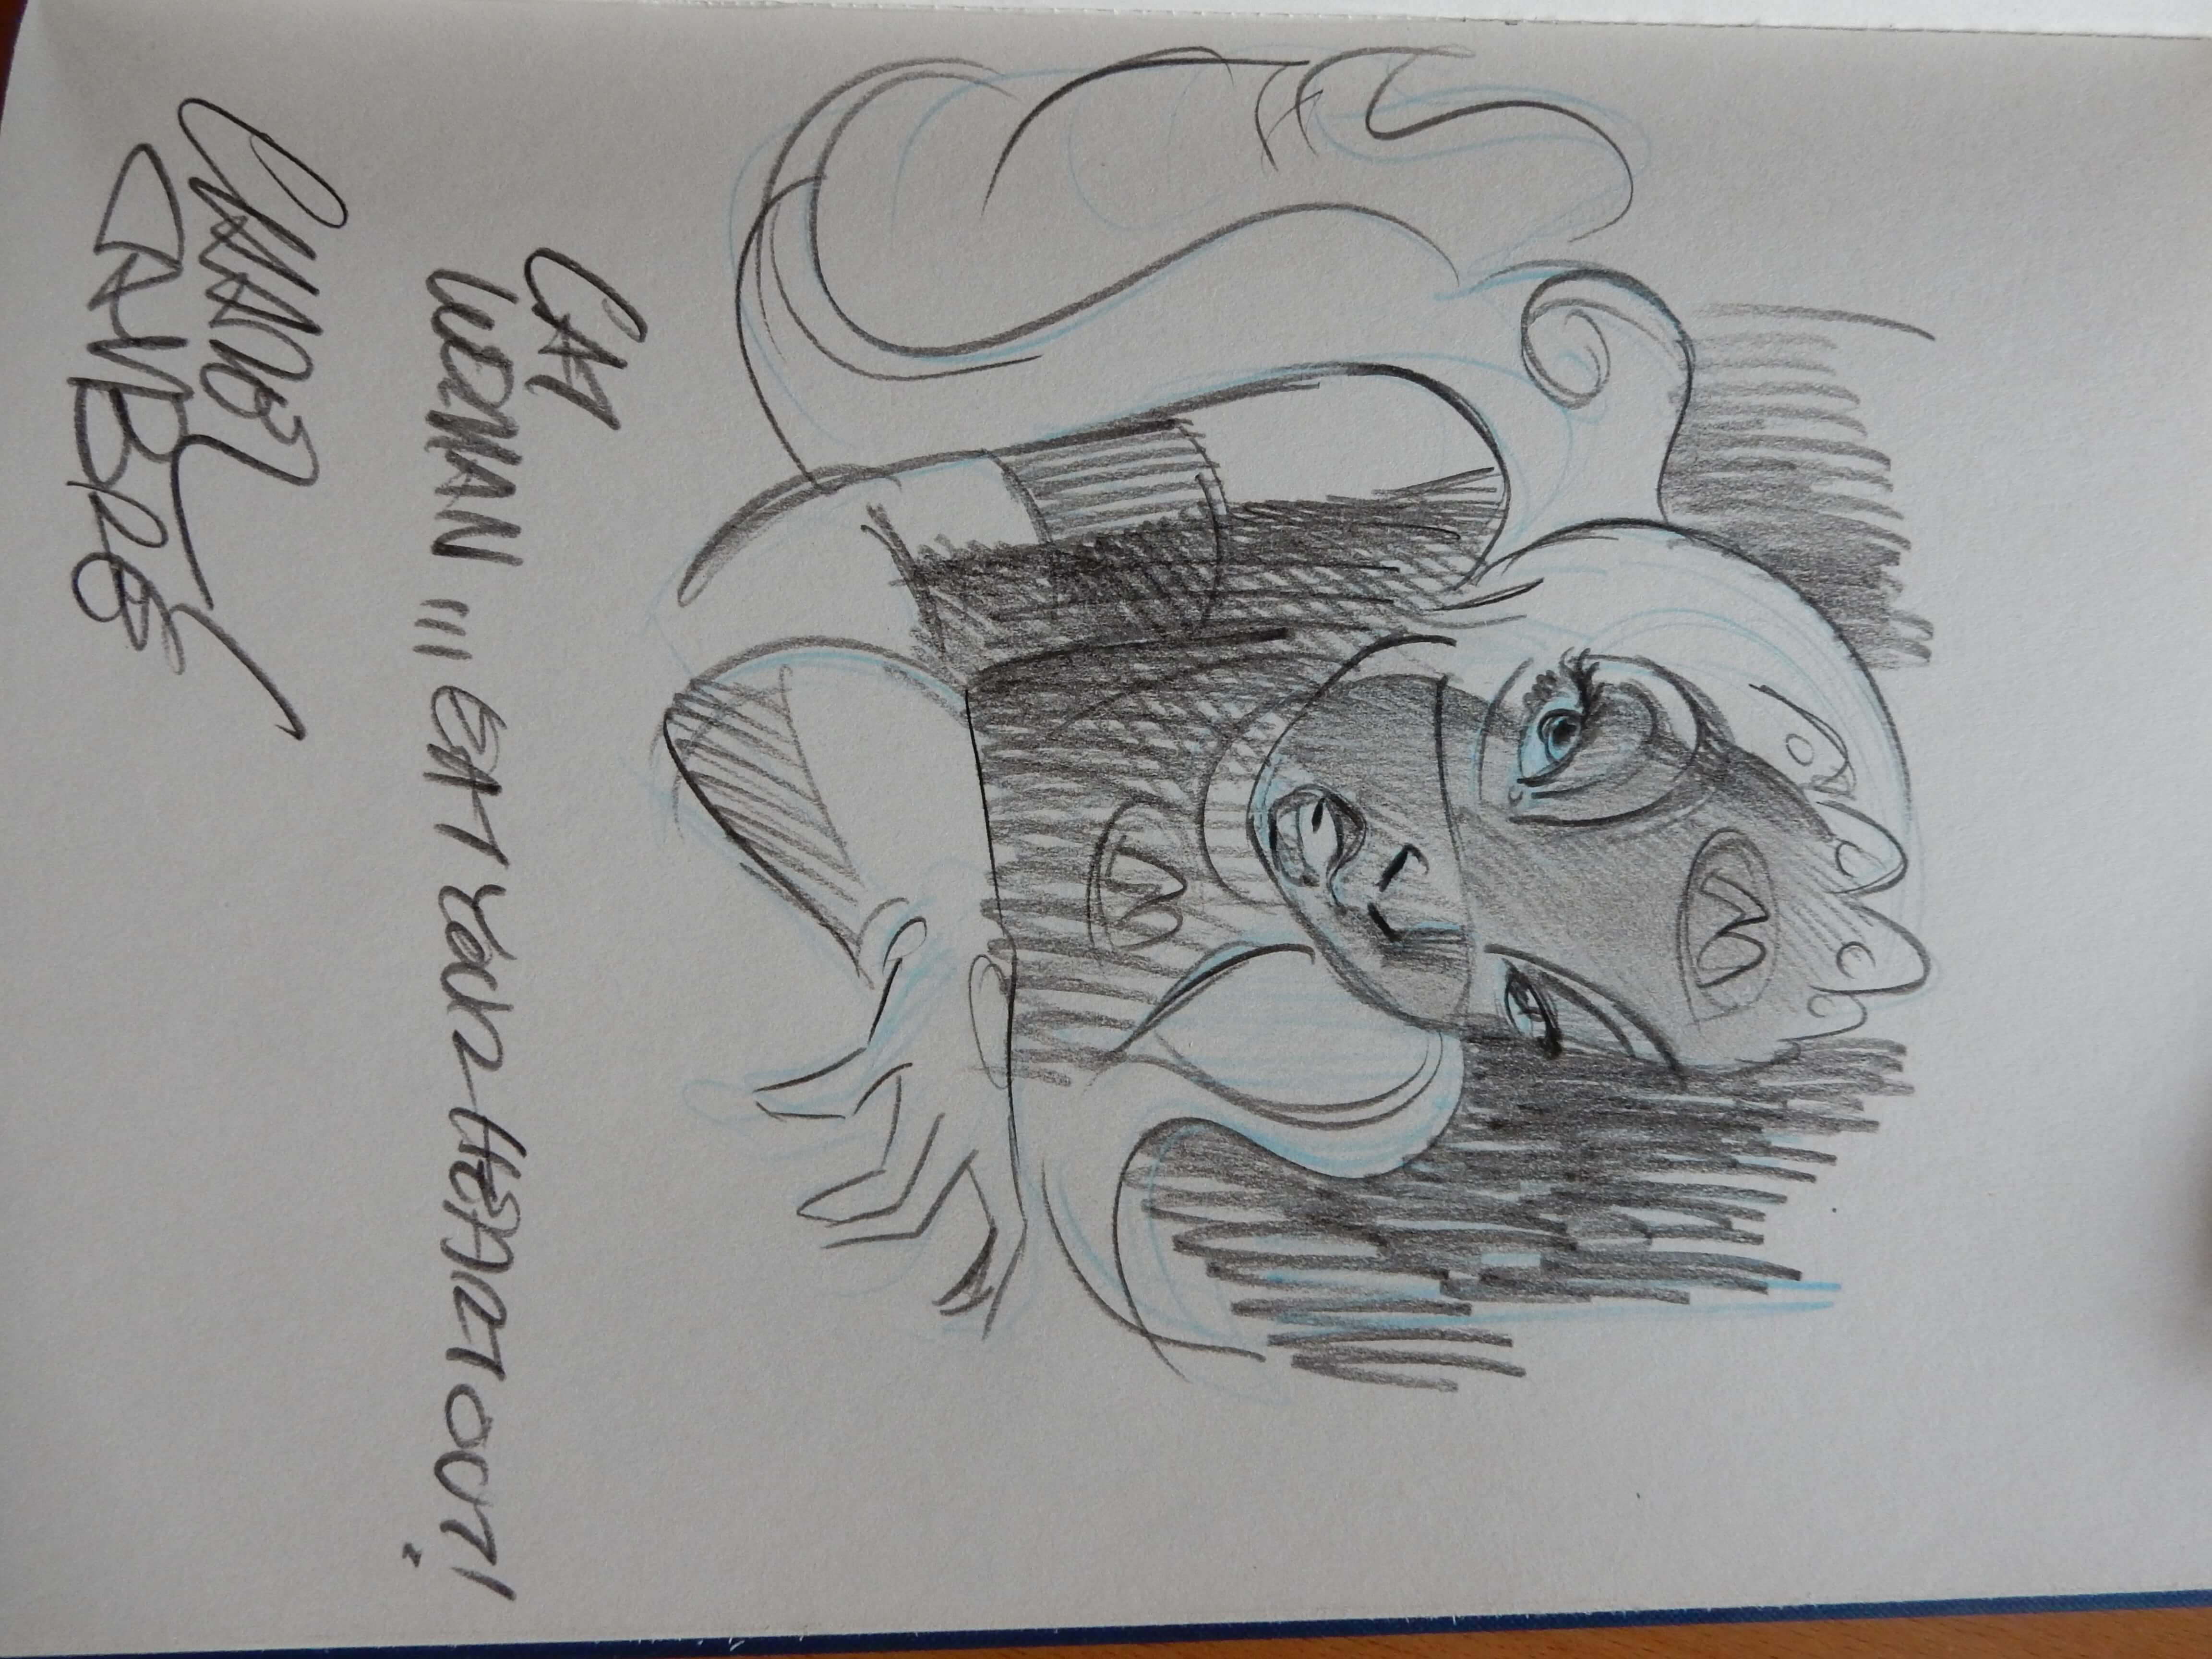 M
M
CAT
WOMAN ... EAT YOUR HEART OUT!
CHAREL
CAMBRÉ